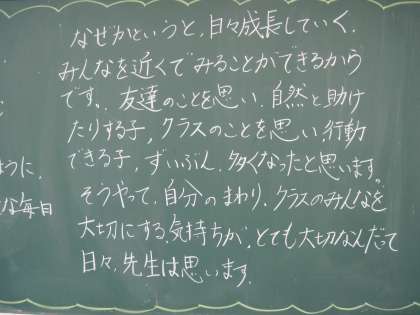 なぜかというと、日々成長していく、
みんなを近くでみることができるから
です。友達のことを思い、自然と助け
たりする子、クラスのことを思い行動
できる子、ずいぶん、多くなったと思います。
そうやって、自分のまわり、クラスのみんなを
大切にする気持ちが、とても大切なんだって
日々、先生は思います。
ように、
な毎日